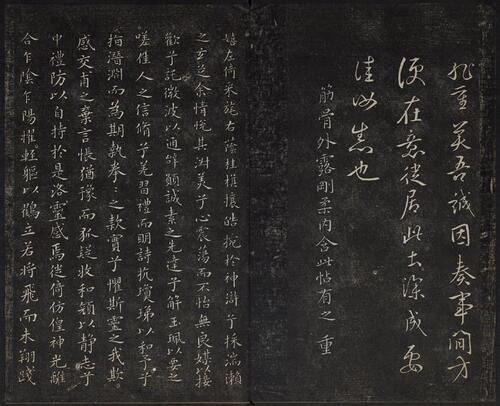 美吾誠因奏事間
在意使居此深成要
佳也
筋骨外露剛柔内含此帖有之 重
嬉左倚采旄右蔭桂旗攘皓腕於神滸兮採湍瀨
之玄芝余情悅其淑美兮心震蕩而不怡無良媒以接
歡兮託微波以通辭願誠素之先達兮解玉珮以要之
嗟佳人之信脩兮羌習禮而明詩抗瓊珶以和予兮
指潛淵而為期執拳〻之款實兮懼斯靈之我欺
感交甫之棄言悵猶豫而狐疑收和顏以靜志兮
申禮防以自持於是洛靈感焉徙倚仿偟神光離
合乍陰乍陽擢輕軀以鶴立若將飛而未翔踐